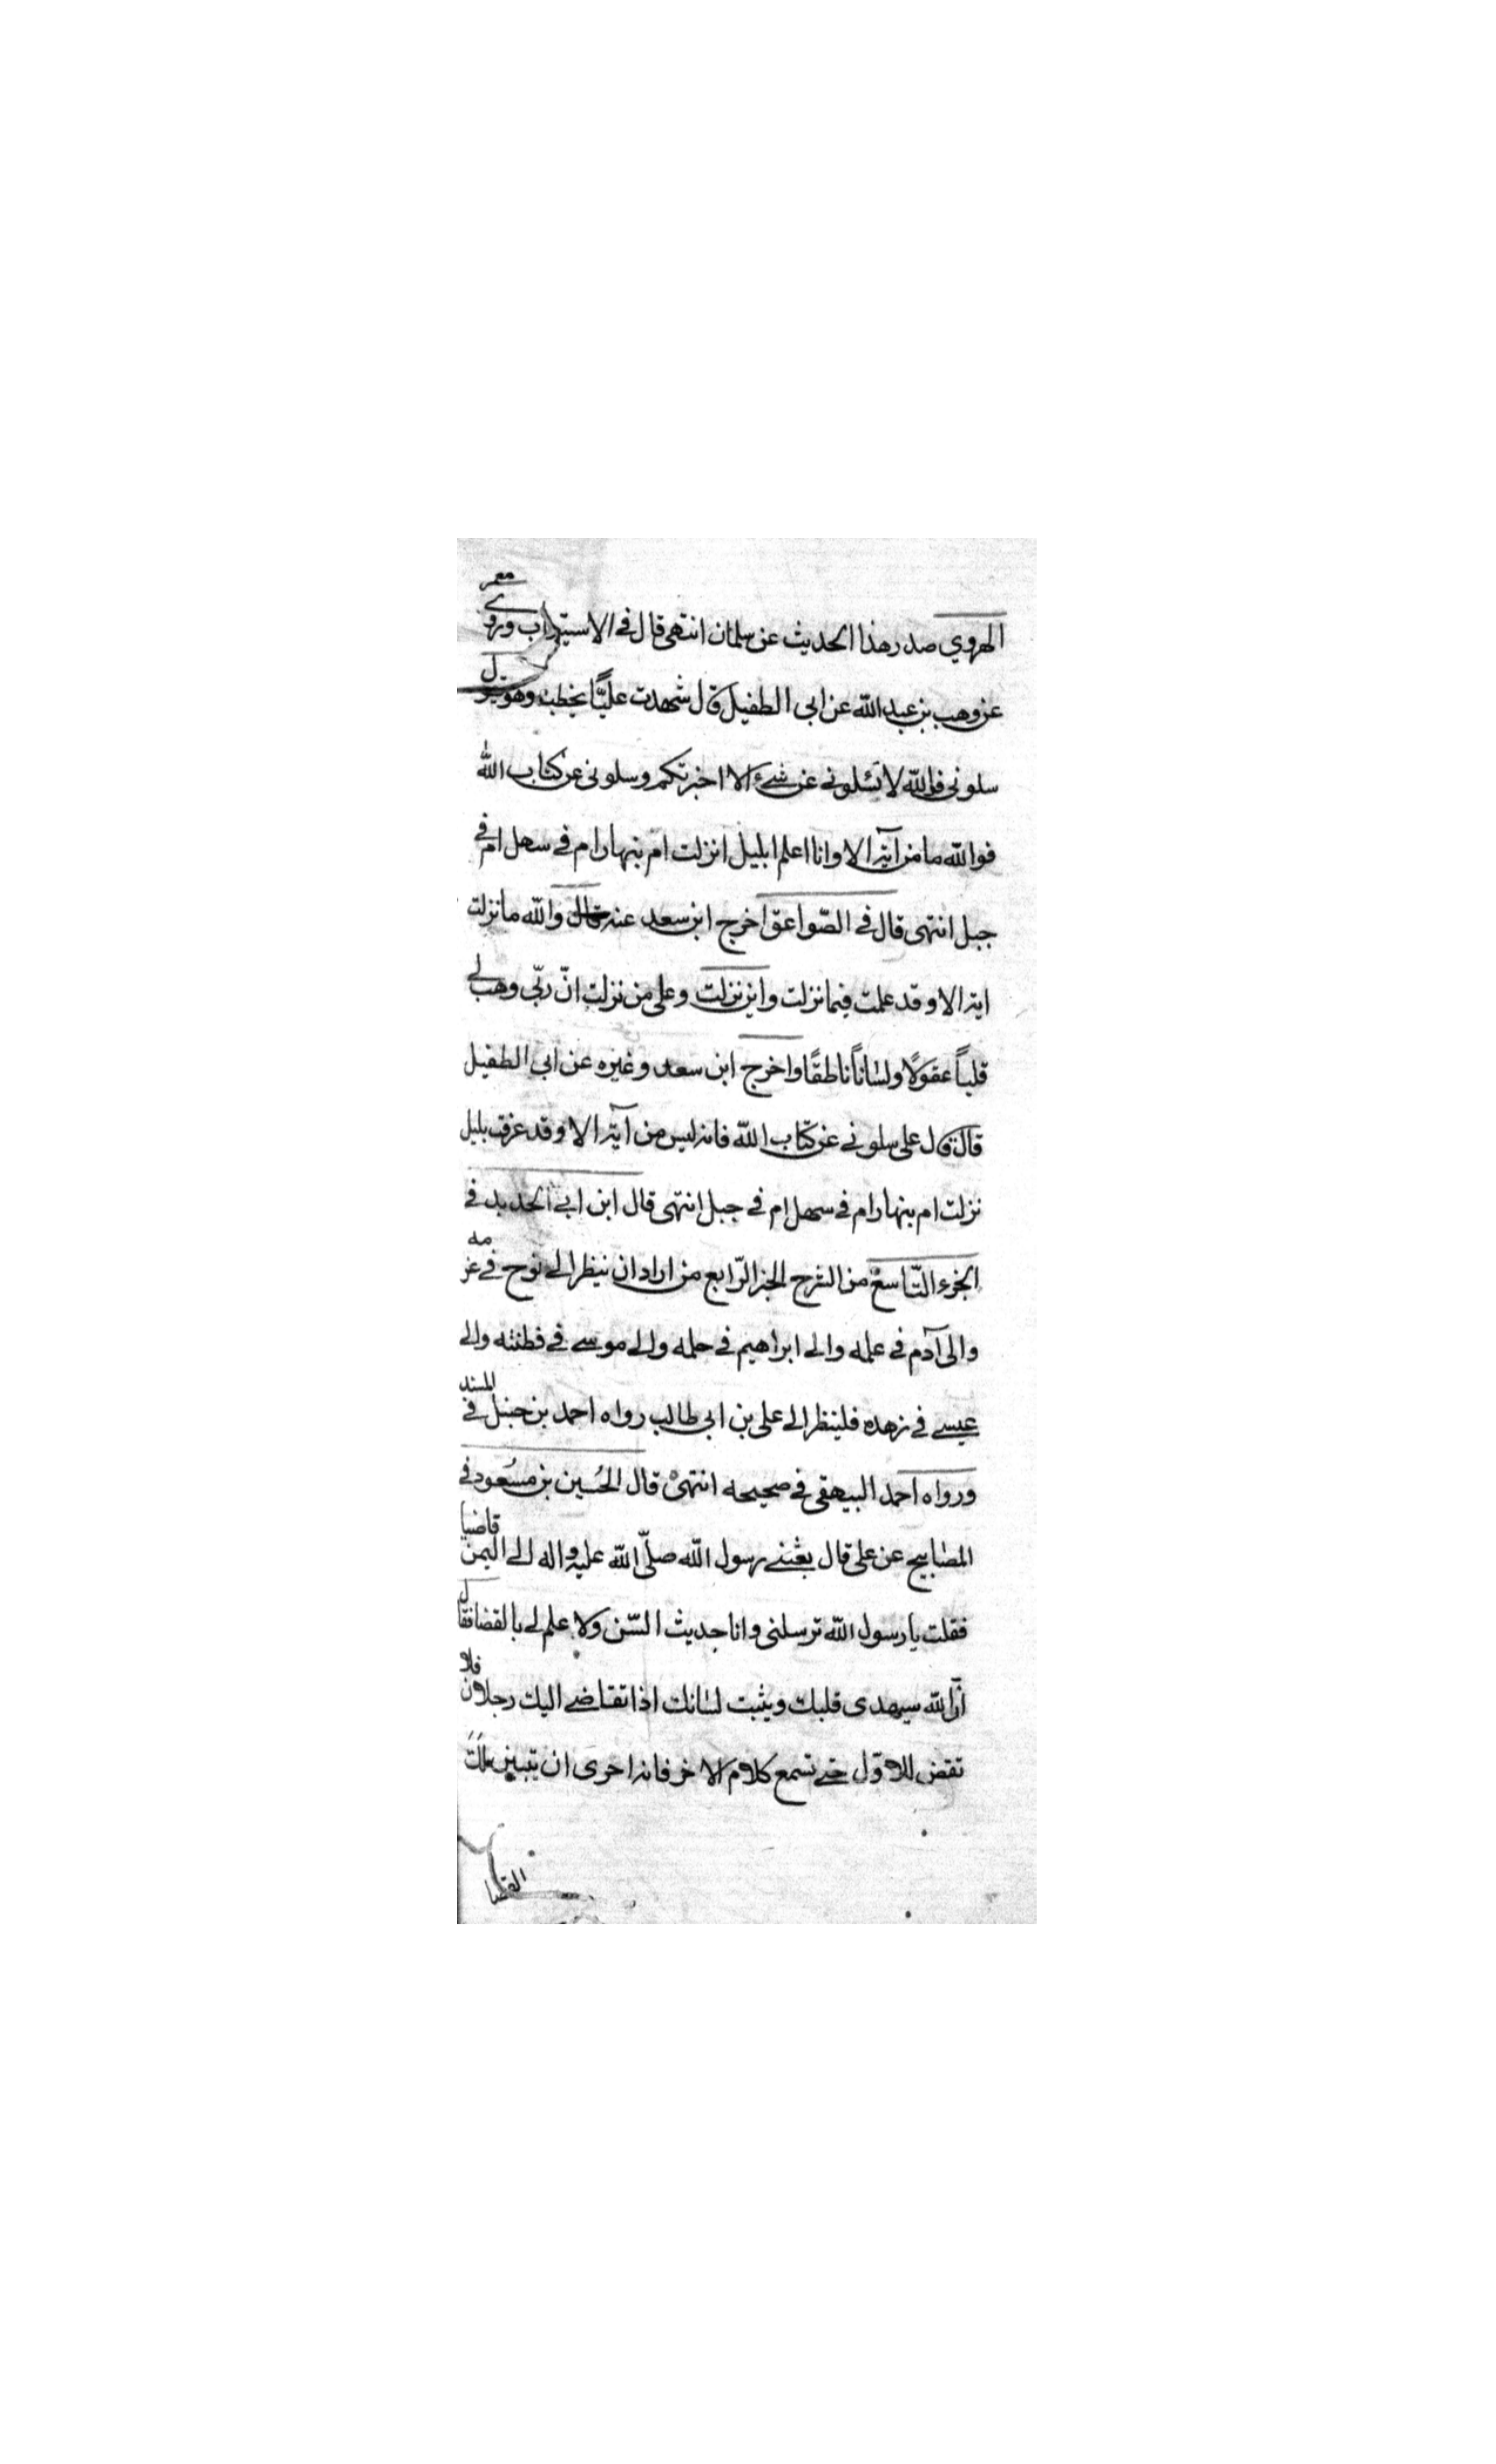 الهروي صدر هذا الحديث عن سلمان انتهى قال في الاستيعاب وروى معمر
عن وهب بن عبد الله عن ابى الطفيل قال شهدت عليًّا يخطب وهو يقول
سلونى فوالله لا تسئلونے عن شئ الا اخبرتكم وسلونى عن كتاب الله
فوالله ما من آية الا وانا اعلم ابليل انزلت ام بنهار ام فے سهل ام فے
جبل انتهى قال فے الصّواعق اخرج ابن سعد عنه قال والله ما نزلت
اية الا وقد علمت فيما نزلت واين نزلت وعلى من نزلت انّ ربّى وهب لے
قلباً عقولًا ولساناً ناطقًا واخرج ابن سعد وغيره عن ابى الطفيل
قال قال على سلونے عن كتاب الله فانه ليس من آية الا وقد عرفت بليل
نزلت ام بنهار ام فے سهل ام فے جبل انتهى قال ابن ابے الحديد فے
الجزء التّاسع من الشرح الخبر الرّابع من اراد ان ينظر الے نوح فے عزمه
والى آدم فے علمه والے ابراهيم فے حلمه والے موسے فے فطنته والے
عيسے فے زهده فلينظر الے على بن ابى طالب رواه احمد بن حنبل فے المسند
ورواه احمد البيهقى فے صحيحه انتهى قال الحُسين بن مسعود فے
المصابيح عن على قال بعثنے رسول الله صلّى الله عليه واله الے اليمن قاضيا
فقلت يا رسول الله ترسلنى وانا حديث السّن ولا علم لے بالقضا فقال
انّ الله سيهدى قلبك ويثبت لسانك اذا تقاضے اليك رجلان فلا
تقض للاوّل حتے تسمع كلام الاخر فانه احرى ان يتبين لك
القضا